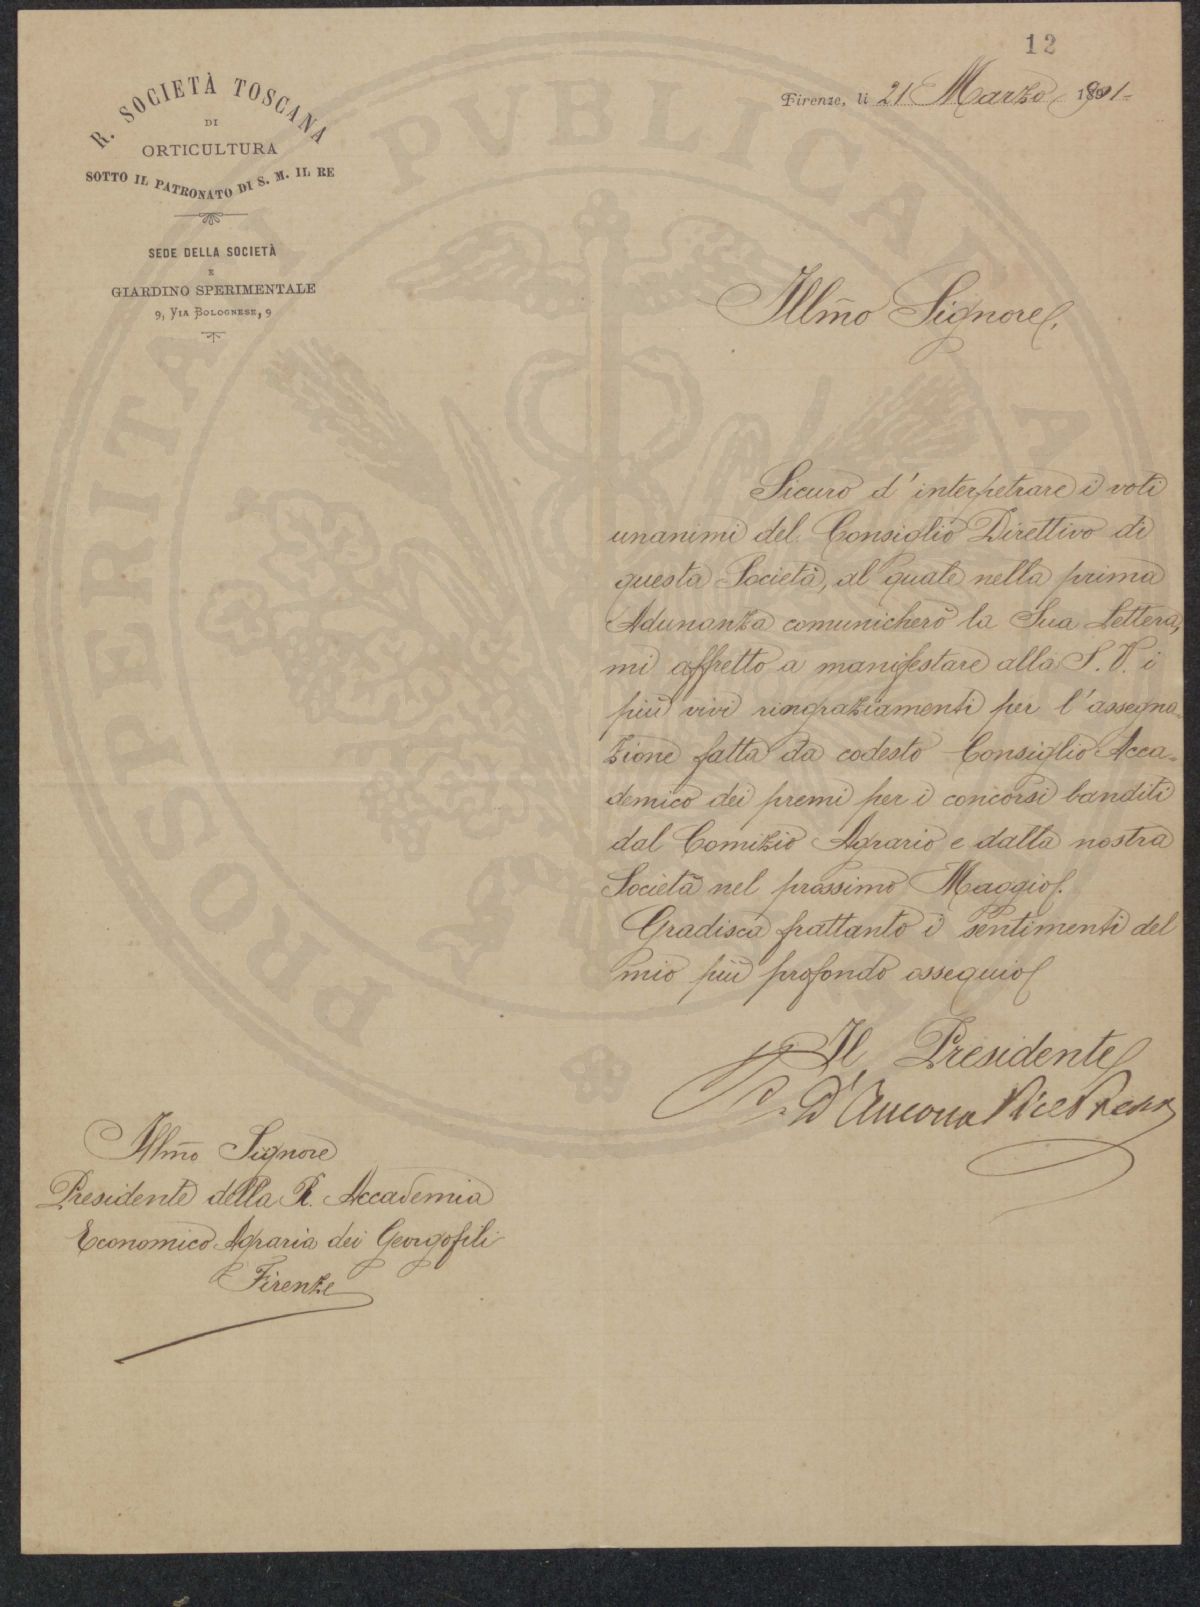 12
R. SOCIETÀ TOSCANA
DI
ORTICULTURA
SOTTO IL PATRONATO DI S. M. IL RE
SEDE DELLA SOCIETÀ
E
GIARDINO SPERIMENTALE
9, VIA BOLOGNESE, 9
Firenze, li 21 Marzo 1901-
Illmo Signore.
Sicuro d'interpetrare i voti
unanimi del Consiglio Direttivo di
questa Società, al quale nella prima
Adunanza comunicherò la Sua Lettera,
mi affretto a manifestare alla S. V. i
più vivi ringraziamenti per l'assegna-
zione fatta da codesto Consiglio Acca-
demico dei premi per i concorsi banditi
dal Comizio Agrario e dalla nostra
Società nel prossimo Maggio.
Gradisca frattanto i sentimenti del
mio più profondo ossequio
Il Presidente
D'Ancona Vice Pres
Illmo Signore
Presidente della R. Accademia
Economico Agraria dei Georgofili
Firenze
PROSPERITATI PVBLICAE A